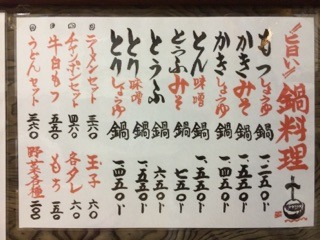 〝旨い〟鍋料理
もつしょうゆ鍋 一二五〇
かきしょうゆ鍋 一四五〇
かきみそ鍋 一五五〇
とん味噌鍋 一一五〇
とうふみそ鍋 七五〇
とうふ鍋 六五〇
とり味噌鍋 一一五〇
とりしょうゆ鍋 一四五〇
ラーメンセット 三六〇
チャンポンセット 四六〇
牛白もつ 五五〇
うどんセット 三六〇
玉子 六〇
各タレ 六〇
もち 一五〇
野菜各種 二〇〇